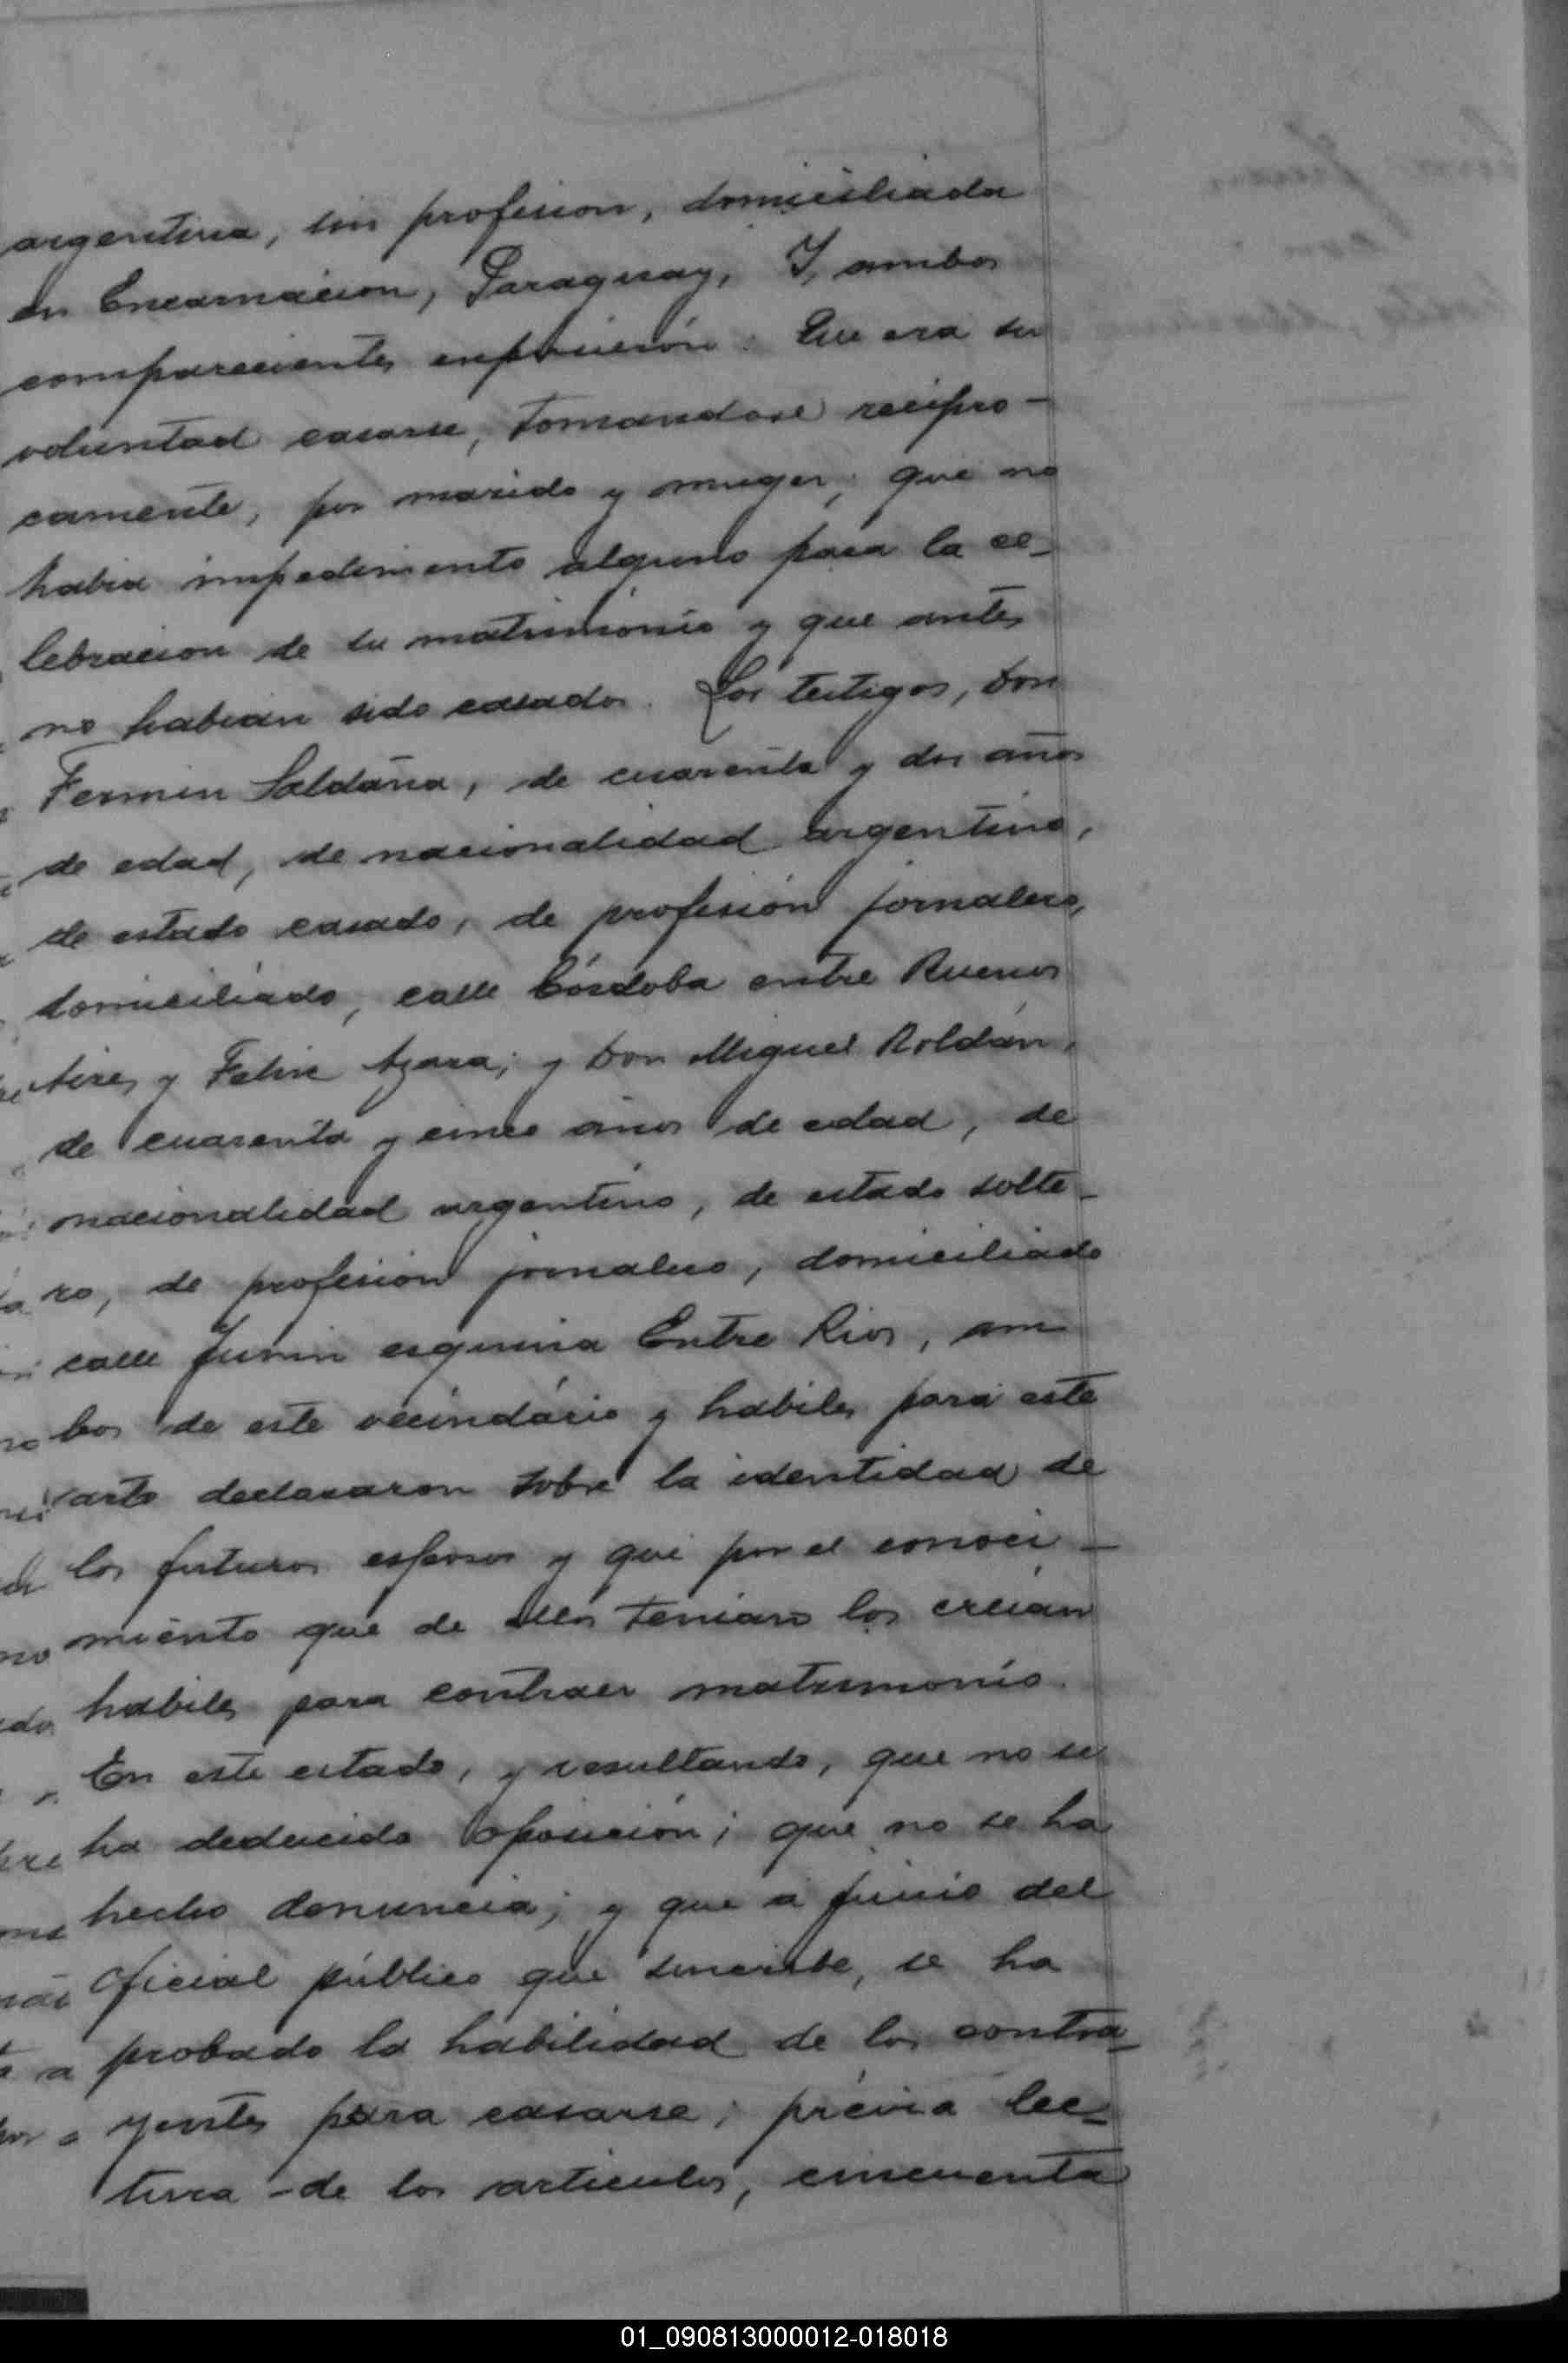 argentina, sin profesion, domiciliada
en Encarnacion, Paraguay, Y, ambos
comparecientes expusieron: Que era su
voluntad casarse, tomandose recipro-
camente, por marido y muger; que no
habia impedimento alguno para la ce-
lebracion de su matrimonio y que antes
no habian sido casados. Los testigos, Don
Fermin Saldaña, de cuarenta y dos años
de edad, de nacionalidad argentino,
de estado casado, de profesión jornalero,
domiciliado, calle Córdoba entre Buenos
Aires y Felix Azara; y Don Miguel Roldán,
de cuarenta y cinco años de edad, de
nacionalidad argentino, de estado solte-
ro, de profesion jornalero, domiciliado
calle Junin esquina Entre Rios, am
bos de este vecindário y habiles para este
acto declararon sobre la identidad de
los futuros esposos y que por el conoci-
miento que de ellos tenian los creian
habiles para contraer matrimonio.
En este estado, y resultando, que no se
ha deducido oposición; que no se ha
hecho denuncia; y que a juicio del
oficial público que suscribe, se ha
probado la habilidad de los contra-
yentes para casarse; prévia lec-
tura de los articulos, cincuenta
01_090813000012-018018